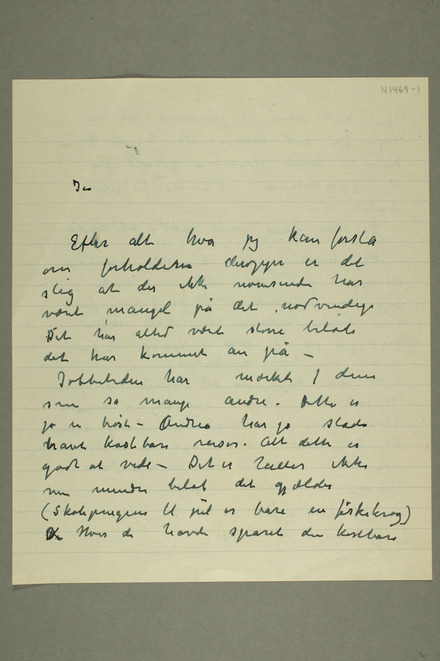 N1469-1
Efter alt hva jeg kan forstå
om forholdene deroppe er det
slig at der ikke har
vært mangel på det nødvendige
Det har altid vært store beløb
det har kommet an på –
Jobbetiden har I
som so mange andre. Dette er
jo en trøst – Andrea har jo stadig
kostbare reiser. Alt dette er
godt at vide – Det er heller ikke
om mindre beløb det gjælder
(Skolepengene til jul er bare en )
Hvis de havde sparet den kostbare